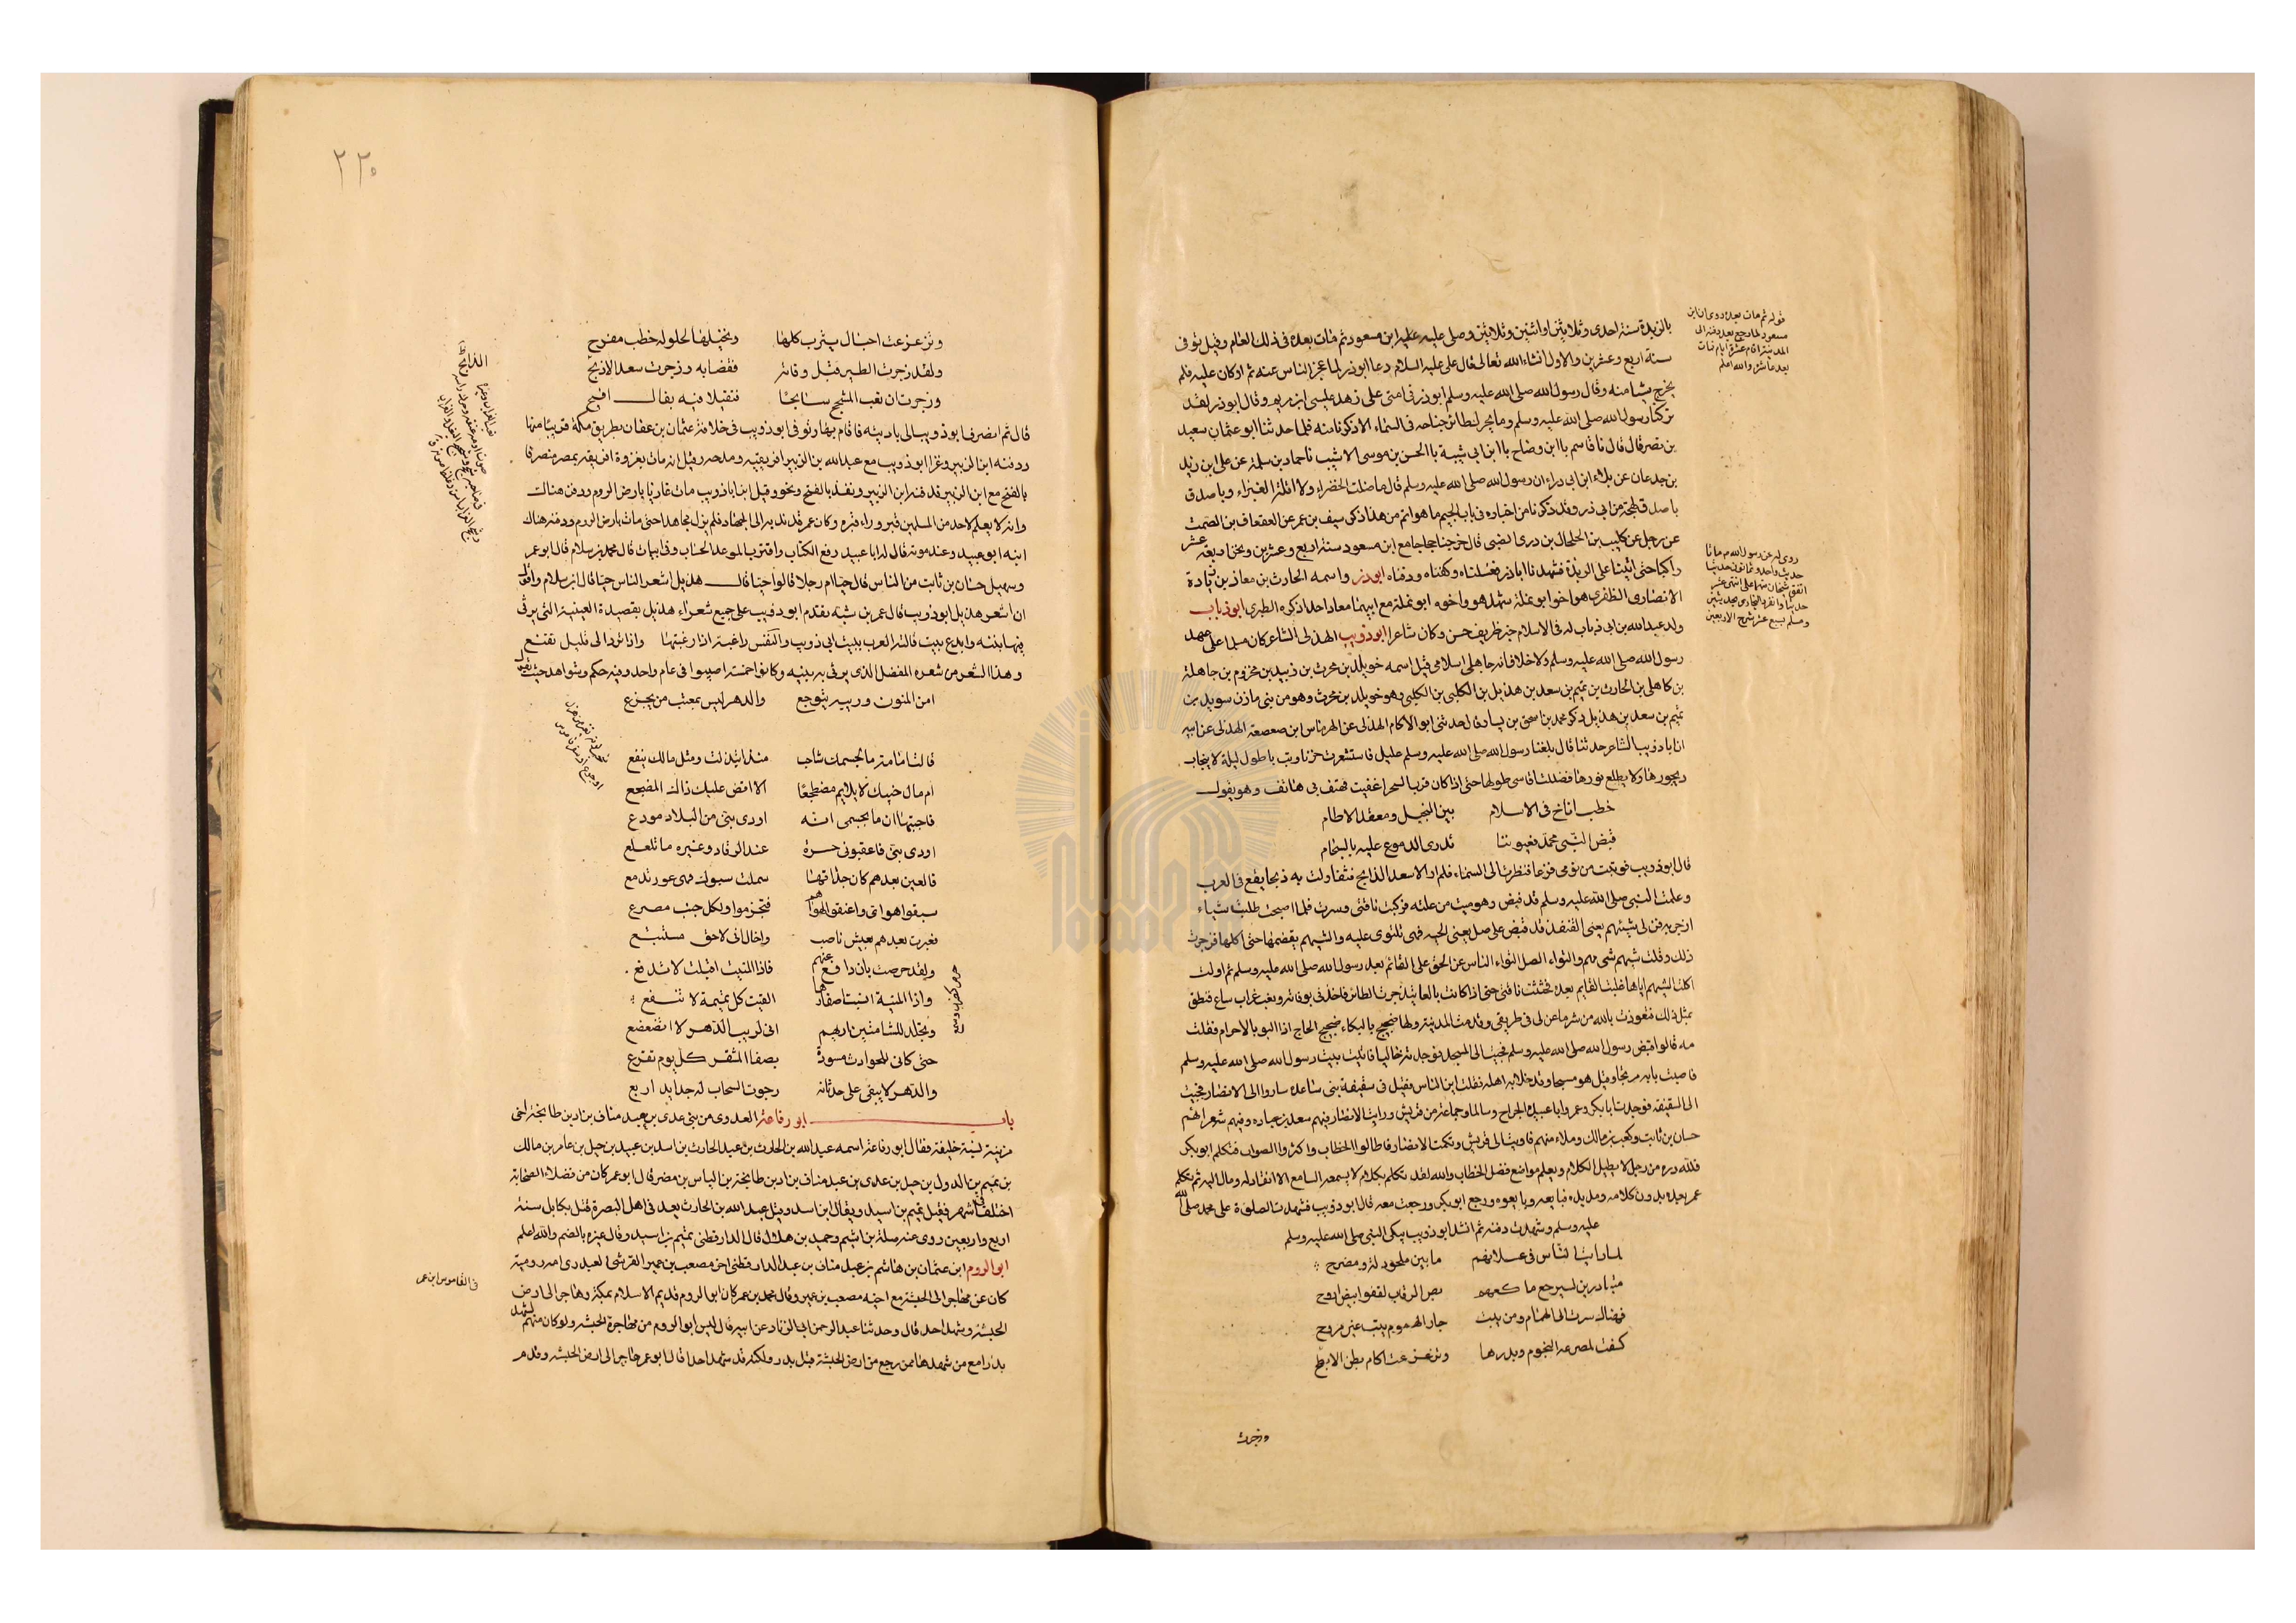 بالربذة سنة احدى وثلاثين او اثنتين وثلاثين وصلى عليه ابن مسعود ثم مات بعده فى ذلك العام وقيل توفى
سنة اربع وعشرين والاول انشاء الله تعالى قال على عليه السلام دعا ابوذر لما عجز الناس عنه ثم اوكان عليه فلم
يخرج شيئا منه وقال رسول الله صلى الله عليه وسلم ابوذر فى امتى على زهد عيسى ابن مريم وقال ابوذر لقد
تركنا رسول الله صلى الله عليه وسلم وما يحرك طائر جناحه فى السماء الا ذكرنا منه علما حدثنا ابو عثمان سعيد
بن نصر قال قال نا قاسم نا ابن وضاح نا ابن ابى شيبة نا الحسن بن موسى الاشيب نا حماد بن سلمة عن على ابن زيد
بن جدعان عن بلال ابن ابى درداء ان رسول الله صلى الله عليه وسلم قال ما اظلت الخضراء ولا اقلت الغبراء
اصدق لهجة من ابى ذر وقد ذكرنا من اخباره فى باب الجيم ما هو اتم من هذا ذكر سيف بن عمر عن القعقاع بن الصلت
عن رجل عن كليب بن الحلحال بن درى الضبى قال خرجنا حجاجا مع ابن مسعود سنة اربع وعشرين ونحن اربعة عشر
راكبا حتى اتينا على الربذة فشهدنا اباذر فغسلناه وكفناه ودفناه ابوذر واسمه الحارث بن معاذ بن زرارة
الانصارى الظفرى هو اخو ابو نملة شهد هو واخوه ابو نملة مع ابيهما معاذ احدا ذكره الطبرى ابوذباب
ولد عبد الله بن ابى ذباب له فى الاسلام خبر ظريف حسن وكان شاعرا ابوذويب الهذلى الشاعر كان مسلما على عهد
رسول الله صلى الله عليه وسلم ولا خلاف انه جاهلى اسلامى قيل اسمه خويلد بن محرث بن زبيد بن مخزوم بن جاهلة
بن كاهل بن الحارث بن تميم بن سعد بن هذيل بن الكلبى وهو خويلد بن محرث وهو من بنى مازن سويد بن
تميم بن سعد بن هذيل ذكر محمد بن اسحق بن يسار قال حدثنى ابو الاكام الهذلى عن الهرماس ابن صعصعة الهذلى عن ابيه
ان اباذويب الشاعر حدثنا قال بلغنا رسول الله صلى الله عليه وسلم عليل فاستشعرت حزنا وبت باطول ليلة لا ينجاب
ديجورها ولا يطلع نورها فظللت اقاسى طولها حتى اذا كان قرب السحر اغفيت فهتف بى هاتف وهو يقول
خطب اناخ فى الاسلام بين النخيل ومعقد الاطام
قبض النبى محمد فعيوننا تذرى الدموع عليه بالسجام
قال ابوذويب فوثبت من نومى فزعا فنظرت الى السماء فلم ار الا سعد الذابح فتفاولت به ذبحا يقع فى العرب
وعلمت النبى صلى الله عليه وسلم قد قبض وهو ميت من علته فركبت ناقتى وسرت فلما اصبحت طلبت شيئا
ازجر به فعن لى شيهم يعنى القنفذ قد قبض على صل يعنى الحيه فهى تلتوى عليه والشيهم يقضمها حتى اكلها فزجرت
ذلك وقلت شيهم شى مهم والتواء الصل التواء الناس عن الحق على القائم بعد رسول الله صلى الله عليه وسلم ثم اولت
اكل الشيهم اياها غلبة القايم بعده فحثثت ناقتى حتى اذا كانت بالغابة زجرت الطائر فاخبرنى بوفاته ونعب غراب سانح فنطق
بمثل ذلك فتعوذت بالله من شر ما عن لى فى طريقى وقدمت المدينة ولها ضجيج بالبكاء ضجيج الحاج اذا البوا بالاحرام فقلت
مه قالوا قبض رسول الله صلى الله عليه وسلم فجئت الى المسجد فوجدته خاليا فاتيت بيت رسول الله صلى الله عليه وسلم
فاصبت بابه مرتجا وقيل هو مسجى وقد خلا به اهله فقلت اين الناس فقيل فى سقيفة بنى ساعدة ساروا الى الانصار فجئت
الى السقيفة فوجدت ابابكر وعمر وابا عبيدة الجراح وسالما وجماعة من قريش ورايت الانصار فيهم سعد بن عباده وفيهم شعراهم
حسان بن ثابت وكعب بن مالك وملاء منهم فاويت الى قريش وتكلمت الانصار فاطالوا الخطاب واكثروا الصواب فتكلم ابوبكر
فلله دره من رجل لا يطيل الكلام ويعلم مواضع فصل الخطاب والله لقد تكلم بكلام لا يسمعه السامع الا انقاد له ومال اليه ثم تكلم
عمر بعده بدون كلامه ومد يده فبايعه وبايعوه ورجع ابوبكر ورجعت معه قال ابوذويب فشهدت الصلوة على محمد صلى الله
عليه وسلم وشهدت دفنه ثم انشد ابوذويب يبكى النبى صلى الله عليه وسلم
لما رايت الناس فى عسلانهم ما بين ملحود له ومضرح
متبادرين لشرجع باكفهم نص الرقاب لفقد ابيض اروح
فهناك صرت الى الهموم ومن يبت جار الهموم يبيت غير مروح
كسفت لمصرعه النجوم وبدرها وتزعزعت اكام بطن الابطح
وزجرت
قوله ثم مات بعده روى ان ابن
مسعود لما رجع بعد دفنه الى
المدينة اقام عشرة ايام فمات
بعد عاشر والله اعلم
روى له عن رسول الله م مائتا
حديث واحد وثمانون حديثا
اتفق الشيخان منها على اثنى عشر
حديثا وانفرد البخارى بحديثين
ومسلم بسبع عشر شرح الاربعين
٢٢٥
وتزعزعت اجبال يثرب كلها ونخيلها لحلول خطب مفدح
ولقد زجرت الطير قبل وفاته بمصابه وزجرت سعد الاذبح
وزجرت ان نعب المشحج سانحا متفيلا فيه بفال اقبح
قال ثم انصرف ابوذويب الى باديته فاقام بها وتوفى ابوذويب فى خلافة عثمان بن عفان بطريق مكة قريبا منها
ودفنه ابن الزبير وغزا ابوذويب مع عبد الله بن الزبير افريقية ومدحه وقيل انه مات بغزوة افريقية بمصر منصرفا
بالفتح مع ابن الزبير فدفنه ابن الزبير ونفذ بالفتح وحده وقيل ان اباذويب مات غازيا بارض الروم ودفن هناك
وانه لا يعلم لاحد من المسلمين قبر وراء قبره وكان عمر قد ندبه الى الجهاد فلم يزل مجاهدا حتى مات بارض الروم ودفنه هناك
ابنه ابو عبيد وعند موته قال له ابا عبيد رفع الكتاب واقترب الموعد الحساب وفى ابيات قال محمد بن سلام قال ابو عمر
وسئل حسان بن ثابت من اشعر الناس قال حيا ام رجلا قالوا حيا قال هذيل اشعر الناس حيا قال ابن سلام واقول
ان اشعر هذيل ابوذويب قال عمر بن شبه تقدم ابوذويب على جميع شعراء هذيل بقصيدة العينية التى يرثى
فيها بنيه وابدع بيت قالته العرب بيت ابى ذويب والنفس راغبة اذا رغبتها واذا ترد الى قليل تقنع
وهذا الشعر من شعره المفضل الذى يرثى به بنيه وكانوا خمسة اصيبوا فى عام واحد وفيه حكم وشواهد حيث يقول
امن المنون وريبه تتوجع والدهر ليس بمعتب من يجزع
قالت امامة ما لجسمك شاحبا منذ ابتذلت ومثل مالك ينفع
ام ما لجنبك لا يلايم مضطجعا الا اقض عليك ذاك المضجع
فاجبتها ان ما بجسمى انه اودى بنى من البلاد فودع
اودى بنى فاعقبونى حسرة عند الرقاد وعبرة ما تقلع
فالعين بعدهم كان حداقها سملت بشوك فهى عور تدمع
سبقوا هواى واعنقوا لهواهم فتخرموا ولكل جنب مصرع
فغبرت بعدهم بعيش ناصب واخال انى لاحق مستتبع
ولقد حرصت بان ادافع عنهم فاذا المنية اقبلت لا تدفع
واذا المنية انشبت اظفارها الفيت كل تميمة لا تنفع
وتجلد للشامتين اريهم انى لريب الدهر لا اتضعضع
حتى كانى للحوادث مروة بصفا المشقر كل يوم تقرع
والدهر لا يبقى على حدثانه جون السحاب له جدايد اربع
باب ابو رفاعة العدوى من بنى عدى بن عبد مناف بن اد بن طابخة اخى
مزينة نسبه خليفة فقال ابو رفاعة اسمه عبد الله بن الحارث بن عبد الحارث بن اسد بن عبيد بن جبل بن عامر بن مالك
بن تميم بن الدول بن جبل بن عدى بن عبد مناف بن اد بن طابخة بن الياس بن مضر قال ابو عمر كان من فضلاء الصحابة
اختلف فى اسمه فقيل تميم بن اسيد ويقال ابن اسد وقيل عبد الله بن الحارث يعد فى اهل البصرة قتل بكابل سنة
اربع واربعين روى عنه صلة بن اشيم وحميد بن هلال قال الدارقطنى تميم بن اسيد وقال غيره بالضم والله اعلم
ابو الروم ابن عمير بن هاشم بن عبد مناف بن عبد الدار قطنى اخى مصعب بن عمير القرشى العبدرى امه رومية
كان ممن هاجر الى الحبشة مع اخيه مصعب بن عمير وقال محمد بن عمر كان ابو الروم قديم الاسلام بمكة وهاجر الى ارض
الحبشة وشهد احد قال وحدثنا عبد الرحمن ابى الزناد عن ابيه قال ليس ابو الروم من مهاجرة الحبشه ولو كان منهم لشهد
بدرا مع من شهدها ممن رجع من ارض الحبشة قبل بدر ولكنه قد شهد احدا قال ابو عمر هاجر الى ارض الحبشه وقدم
فى القاموس ابن عمر